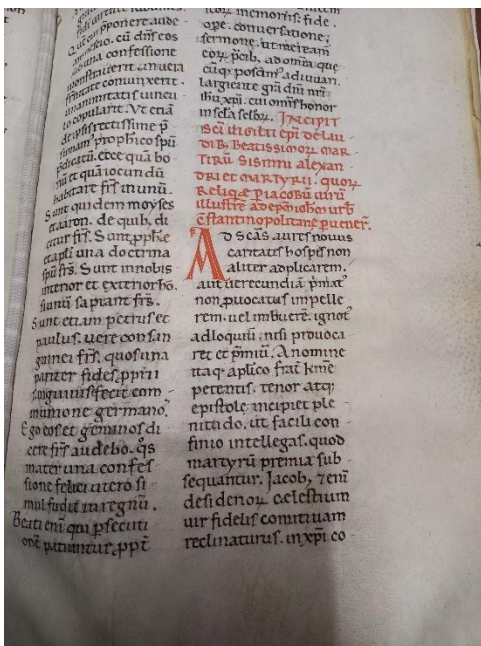 Qui enim pponere aude
ant cielo. cū dn̄s eos
in una confessione
monstraverit. inuera
fr̄nitate comunxerit.
unanimitatis uincu
lo copularit. Vt etiā
deipsis rectissime p̄
sumam ppħico spū
dictū. ecce quā bo
nū et quā iocundū
habitare fr̄s inunū.
Sunt quidem moyses
et aaron. de quib. di
citur fr̄s. Sunt ppħe
et apl̄i una doctrina
spū fr̄s. Sunt in nobis
interior et exterior hō.
si unū sapiant fr̄s.
Sunt etiam petrus et
paulus. uere consan
guinei fr̄s. quos una
pariter fides. pprii
sanguinis fecit com
munione germanos.
Ego eos et geminos di
cere fr̄s audebo. q̄s
mater una confes
sione felici utero si
mul fudit in regnū.
Beati enī qui psecuti
onē patiuntur. ppt̄
memoriis fide.
ope. conuersatione.
sermone. ut merear
eoꝝ p̄cib. ad om̄ia que
cūq; possim adiuuari.
largiente gr̄a dn̄i nr̄i
ihu xp̄i. cui om̄is honor
in sc̄la scl̄oꝝ. INCIPIT
SC̄I UIGILII EP̄I DE LAU
DIB. BEATISSIMOꝝ MAR
TIRŪ SISINNI ALEXAN
DRI ET MARTYRII. QUOꝝ
RELIQ̄E P IACOBŪ UIRŪ
ILLUSTRĒ AD EP̄M IOH̄M URB̄
C̄STANTINOPOLITANĒ PUENER̄.
AD SC̄AS aures nouus
caritatis hospes non
aliter adplicarem.
aut uerecundiā p̄mat᾿
non puocatus impelle
rem. uel imbuerē. ignot᾿
adloquiū. nisi prouoca
ret et p̄miū. A nomine
itaq; aplico frat̄ km̄e
petentis. tenor atq;
epistole incipiet ple
niti do. ut facili con
finio intellegas. quod
martyrū premia sub
sequantur. Jacob, ⁊ enī
desideríoꝝ celestium
uir fidelis comitiuam
reclinaturus. in xp̄i co